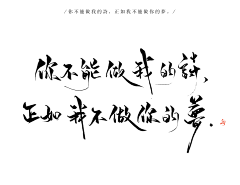 /你不能做我的詩，正如我不能做你的夢。/
你不能做我的詩、
正如我不做你的夢.